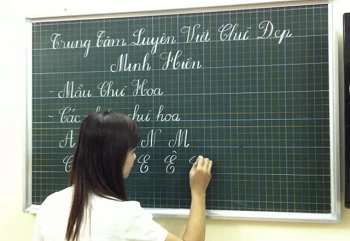 Trung Tâm Luyện Viết Chữ Đẹp
Minh Hiền
- Mẫu Chữ Hoa
- Các chữ hoa
A N M
C E Ê